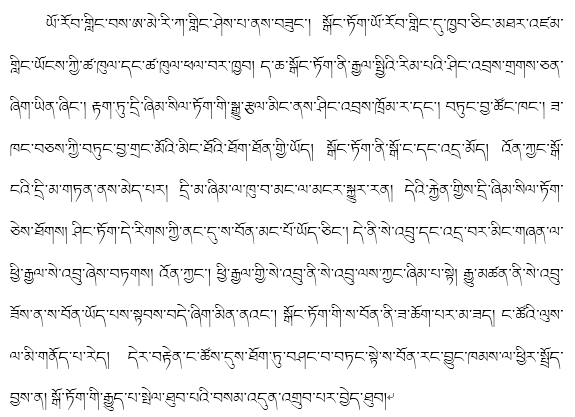 ཡོ་རོབ་གླིང་བས་ཨ་མེ་རི་ཀ་གླིང་ཤེས་པ་ནས་བཟུང་། སྒོང་ཏོག་ཡོ་རོབ་གླིང་དུ་ཁྱབ་ཅིང་མཐར་འཛམ་
གླིང་ཡོངས་ཀྱི་ཚ་ཁུལ་དང་ཚ་ཁུལ་ཕལ་བར་ཁྱབ། ད་ཆ་སྒོང་ཏོག་ནི་རྒྱལ་སྤྱིའི་རིམ་པའི་ཤིང་འབྲས་གྲགས་ཅན་
ཞིག་ཡིན་ཞིང་། རྟག་ཏུ་དྲི་ཞིམ་སིལ་ཏོག་གི་སྒྱུ་རྩལ་མིང་ནས་ཤིང་འབྲས་ཁྲོམ་ར་དང་། བཏུང་བྱ་ཚོང་ཁང་། ཟ་
ཁང་བཅས་ཀྱི་བཏུང་བྱ་གྲང་མོའི་མིང་ཐོའི་ཐོག་ཐོན་གྱི་ཡོད། སྒོང་ཏོག་ནི་སྒོ་ང་དང་འདྲ་མོད། འོན་ཀྱང་སྒོ་
ངའི་དྲི་མ་གཏན་ནས་མེད་པར། དྲི་མ་ཞིམ་ལ་ཁུ་བ་མང་ལ་མངར་སྐྱུར་རན། དེའི་རྐྱེན་གྱིས་དྲི་ཞིམ་སིལ་ཏོག་
ཅེས་ཐོགས། ཤིང་ཏོག་དེ་རིགས་ཀྱི་ནང་དུ་ས་བོན་མང་པོ་ཡོད་ཅིང་། དེ་ནི་སེ་འབྲུ་དང་འདྲ་བར་མིང་གཞན་ལ་
ཕྱི་རྒྱལ་སེ་འབྲུ་ཞེས་བཏགས། འོན་ཀྱང་། ཕྱི་རྒྱལ་གྱི་སེ་འབྲུ་ནི་སེ་འབྲུ་ལས་ཀྱང་ཞིམ་པ་སྟེ། རྒྱུ་མཚན་ནི་སེ་འབྲུ་
ཟོས་ན་ས་བོན་ཡོད་པས་སྟབས་བདེ་ཞིག་མིན་ནའང་། སྒོང་ཏོག་གི་ས་བོན་ནི་ཟ་ཆོག་པར་མ་ཟད། ང་ཚོའི་ལུས་
ལ་མི་གནོད་པ་རེད། དེར་བརྟེན་ང་ཚོས་དུས་ཐོག་ཏུ་བཤང་བ་བཏང་སྟེ་ས་བོན་རང་བྱུང་ཁམས་ལ་ཕྱིར་སྤྲོད་
བྱས་ན། སྒོ་ཏོག་གི་རྒྱུད་པ་སྤེལ་ཐུབ་པའི་བསམ་འདུན་འགྲུབ་པར་བྱེད་ཐུབ།